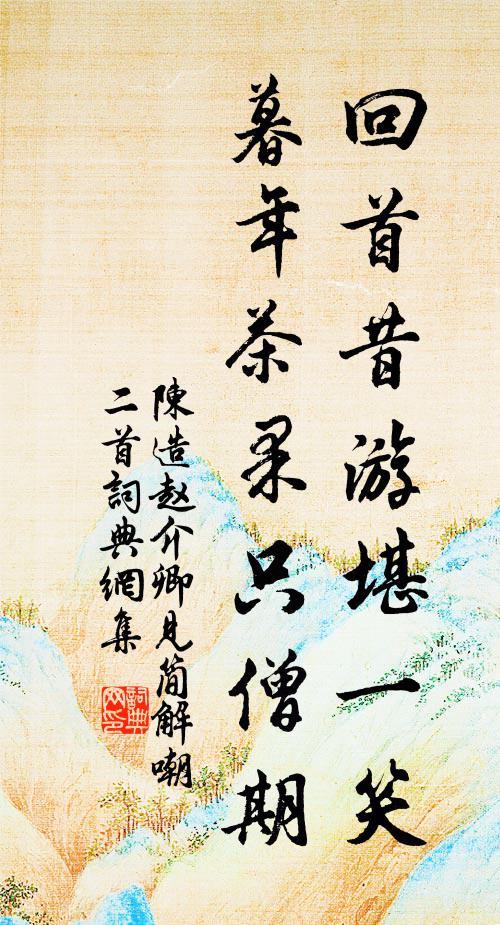 回首昔游堪一笑
暮年茶果只僧期
陳造赵介卿見簡解嘲
二首詞典網集
詞典網印